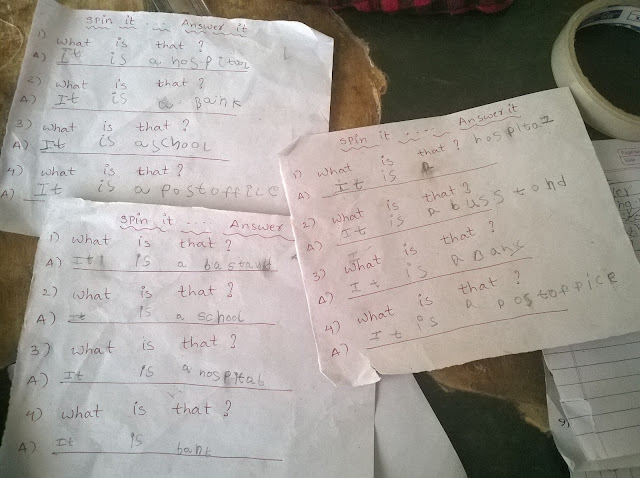 spin it .... Answer it
1) What is that ?
A) It is a hospital
2) What is that ?
A) It is a Bank
3) What is that ?
A) It is a school
4) What is that ?
A) It is a postoffice
spin it .... Answer
1) What is that ?
A) It is a bastant
2) What is that ?
A) It is a school
3) What is that ?
A) It is a hospital
4) What is that ?
A) It is bank
spin it ..... Answer it
1) What is that ? hospital
A) It is A
2) What is that ?
A) It is A busstond
3) What is that ?
A) It is A Bank
4) What is that ?
A) It is a postoppice